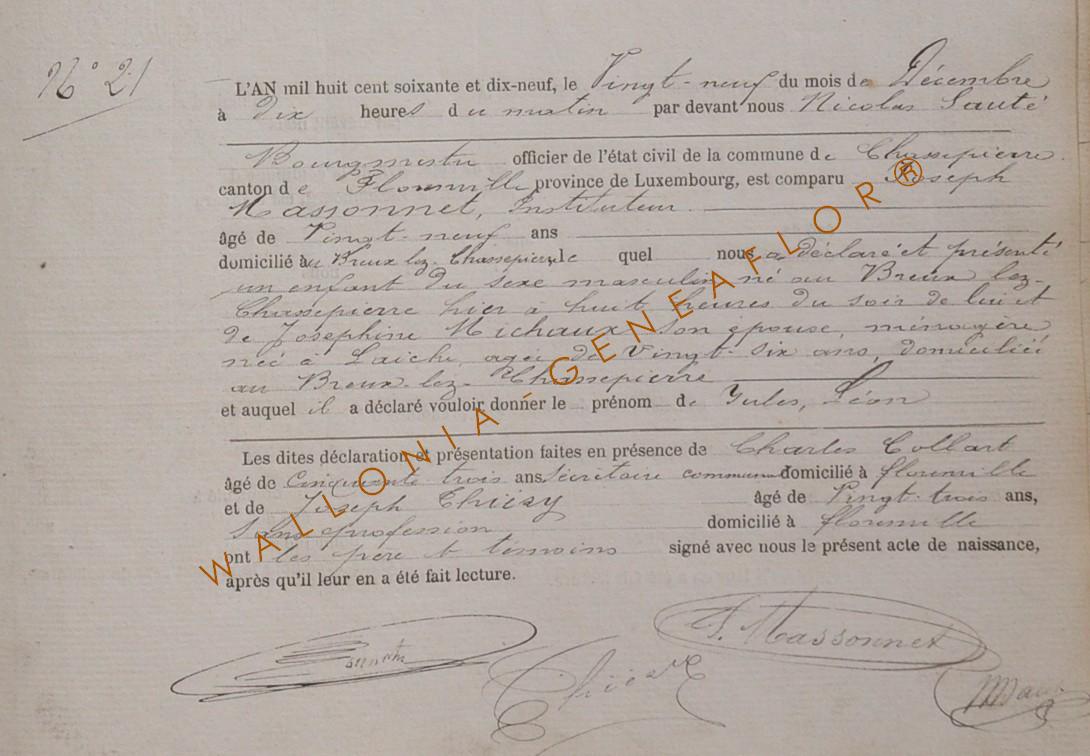 N° 21
L'AN mil huit cent soixante et dix-neuf, le Vingt-neuf du mois de Décembre
à dix heures du matin par devant nous Nicolas Sauté
Bourgmestre officier de l'état civil de la commune de Chassepierre
canton de Florenville province de Luxembourg, est comparu Joseph
Massonnet, Instituteur
âgé de Vingt-neuf ans
domicilié au Breux-lez-Chassepierre le quel nous a déclaré et présenté
un enfant du sexe masculin né au Breux lez-
Chassepierre hier à huit heures du soir de lui et
de Joséphine Michaux son épouse, ménagère
née à Laiche agée de Vingt-six ans, domiciliée
au Breux-lez-Chassepierre
et auquel il a déclaré vouloir donner le prénom de Jules, Léon
Les dites déclaration et présentation faites en présence de Charles Collart
âgé de Cinquante trois ans Sécrétaire communal domicilié à florenville
et de Joseph Thiézy âgé de Vingt-trois ans,
Sans profession domicilié à florenville
ont les père et témoins signé avec nous le présent acte de naissance,
après qu'il leur en a été fait lecture.
J. Massonnet
WALLONIA - GENEAFLOR®